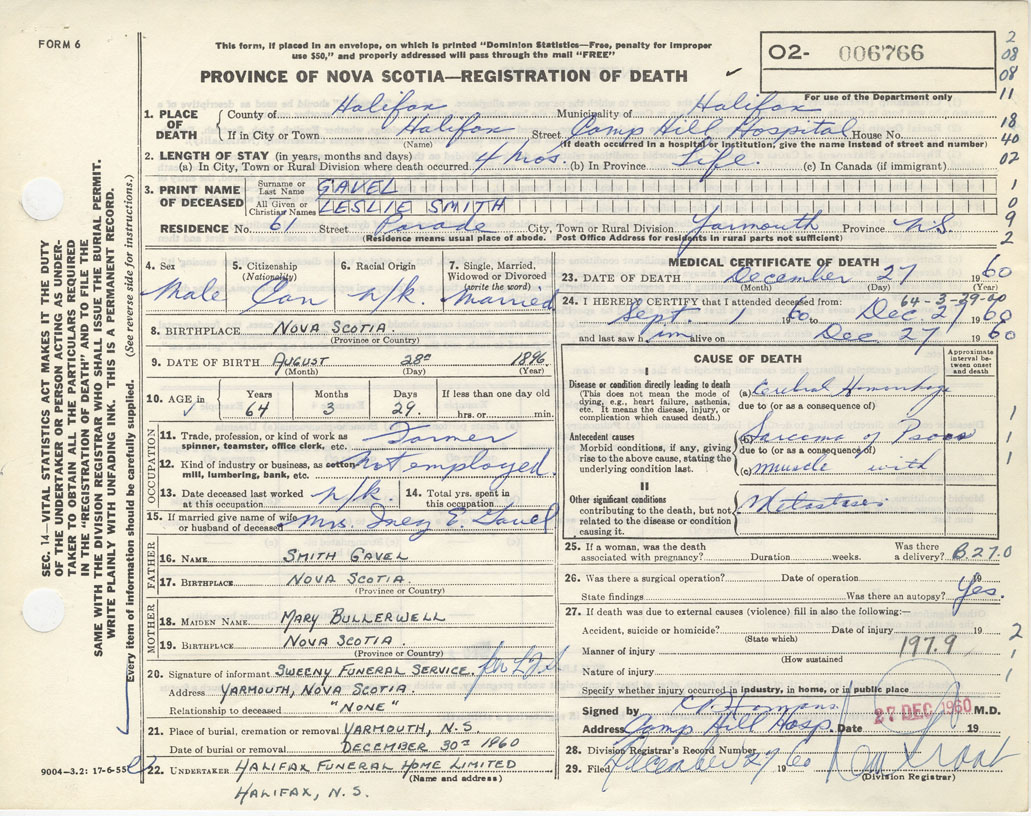 FORM 6
This form, if placed in an envelope, on which is printed "Dominion Statistics—Free, penalty for improper
use $50," and properly addressed will pass through the mail "FREE"
PROVINCE OF NOVA SCOTIA—REGISTRATION OF DEATH
O2- 006766
For use of the Department only
2
08
08
11
18
40
02
1
0
9
2
1. PLACE OF DEATH
County of Halifax Municipality of Halifax
If in City or Town Halifax Street Camp Hill Hospital House No.
(Name) (If death occurred in a hospital or institution, give the name instead of street and number)
2. LENGTH OF STAY (in years, months and days)
(a) In City, Town or Rural Division where death occurred 4 mos. (b) In Province Life. (c) In Canada (if immigrant)
3. PRINT NAME OF DECEASED
Surname or Last Name GAVEL
All Given or Christian Names LESLIE SMITH
RESIDENCE No. 61 Street Parade City, Town or Rural Division Yarmouth Province N.S.
(Residence means usual place of abode. Post Office Address for residents in rural parts not sufficient)
4. Sex Male
5. Citizenship (Nationality) Can
6. Racial Origin n/k.
7. Single, Married, Widowed or Divorced (write the word) Married
8. BIRTHPLACE NOVA SCOTIA.
(Province or Country)
9. DATE OF BIRTH AUGUST 28th 1896
(Month) (Day) (Year)
10. AGE in Years 64 Months 3 Days 29. If less than one day old hrs. or min.
OCCUPATION
11. Trade, profession, or kind of work as spinner, teamster, office clerk, etc. Farmer
12. Kind of industry or business, as cotton mill, lumbering, bank, etc. Not employed.
13. Date deceased last worked at this occupation n/k.
14. Total yrs. spent in this occupation
15. If married give name of wife or husband of deceased Mrs. Inez E. Gavel
FATHER
16. NAME SMITH GAVEL
17. BIRTHPLACE NOVA SCOTIA
(Province or Country)
MOTHER
18. MAIDEN NAME MARY BULLERWELL
19. BIRTHPLACE NOVA SCOTIA
(Province or Country)
20. Signature of informant SWEENY FUNERAL SERVICE.
Address YARMOUTH, NOVA SCOTIA.
Relationship to deceased "NONE"
21. Place of burial, cremation or removal YARMOUTH, N.S.
Date of burial or removal DECEMBER 30th 1960
22. UNDERTAKER HALIFAX FUNERAL HOME LIMITED
(Name and address)
HALIFAX, N.S.
9004-3.2: 17-6-55
MEDICAL CERTIFICATE OF DEATH
23. DATE OF DEATH December 27 1960
(Month) (Day)
24. I HEREBY CERTIFY that I attended deceased from:
64-3-29-00
Sept. 1 1960 to Dec. 27 1960
and last saw him alive on Dec 27 1960
CAUSE OF DEATH
Approximate interval between onset and death
I
Disease or condition directly leading to death
(This does not mean the mode of dying, e.g., heart failure, asthenia, etc. It means the disease, injury, or complication which caused death.)
(a) Cerebral Hemorrhage
due to (or as a consequence of)
Antecedent causes
Morbid conditions, if any, giving rise to the above cause, stating the underlying condition last.
(b) Sarcoma of Psoas
due to (or as a consequence of)
(c) muscle with
II
Other significant conditions
contributing to the death, but not related to the disease or condition causing it.
Metastasis
1
1
1
25. If a woman, was the death associated with pregnancy? Duration weeks. Was there a delivery? B.27.0
26. Was there a surgical operation? Date of operation 19
State findings Was there an autopsy? Yes.
27. If death was due to external causes (violence) fill in also the following:—
Accident, suicide or homicide? Date of injury 19
(State which)
Manner of injury 197.9
(How sustained
Nature of injury
2
1
1
Specify whether injury occurred in industry, in home, or in public place
Signed by M.D.
27 DEC 1960
Address Camp Hill Hosp. Date 19
28. Division Registrar's Record Number
29. Filed December 27 1960
(Division Registrar)
SEC. 14—VITAL STATISTICS ACT MAKES IT THE DUTY
OF THE UNDERTAKER OR PERSON ACTING AS UNDER-
TAKER TO OBTAIN ALL THE PARTICULARS REQUIRED
IN THE "REGISTRATION OF DEATH" AND TO FILE THE
SAME WITH THE DIVISION REGISTRAR WHO SHALL ISSUE THE BURIAL PERMIT.
WRITE PLAINLY WITH UNFADING INK. THIS IS A PERMANENT RECORD.
Every item of information should be carefully supplied. (See reverse side for instructions.)